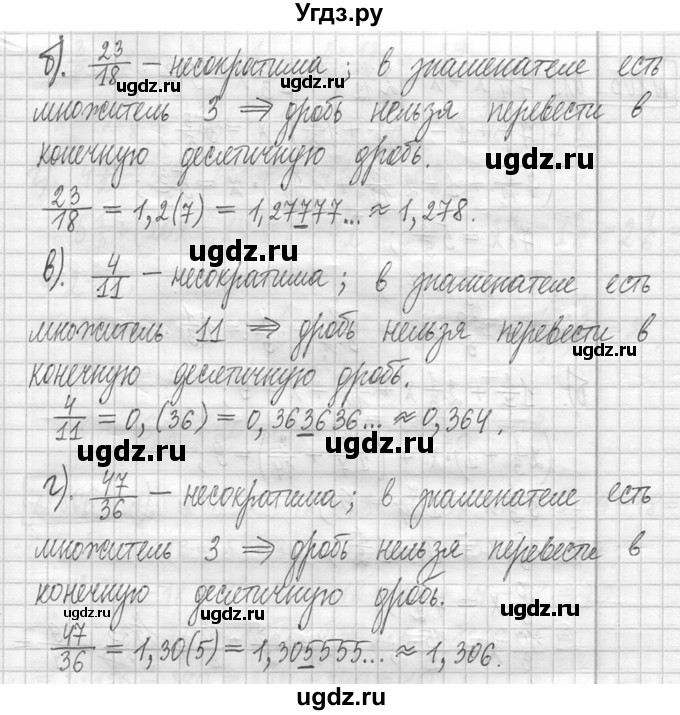 Угдз.ру
б). 23/18 – несократима; в знаменателе есть
ugdz.ru ugdz.ru
множитель 3 ⇒ дробь нельзя перевести в
конечную десятичную дробь.
ugdz.ru
23/18 = 1,2(7) = 1,27777... ≈ 1,278.
ugdz.ru
в). 4/11 – несократима; в знаменателе есть
множитель 11 ⇒ дробь нельзя перевести в
ugdz.ru
конечную десятичную дробь.
4/11 = 0,(36) = 0,363636... ≈ 0,364.
ugdz.ru ugdz.ru
г). 47/36 – несократима; в знаменателе есть
множитель 3 ⇒ дробь нельзя перевести в
ugdz.ru
конечную десятичную дробь.
ugdz.ru ugdz.ru
47/36 = 1,30(5) = 1,305555... ≈ 1,306.
ugdz.ru
ugdz.ru